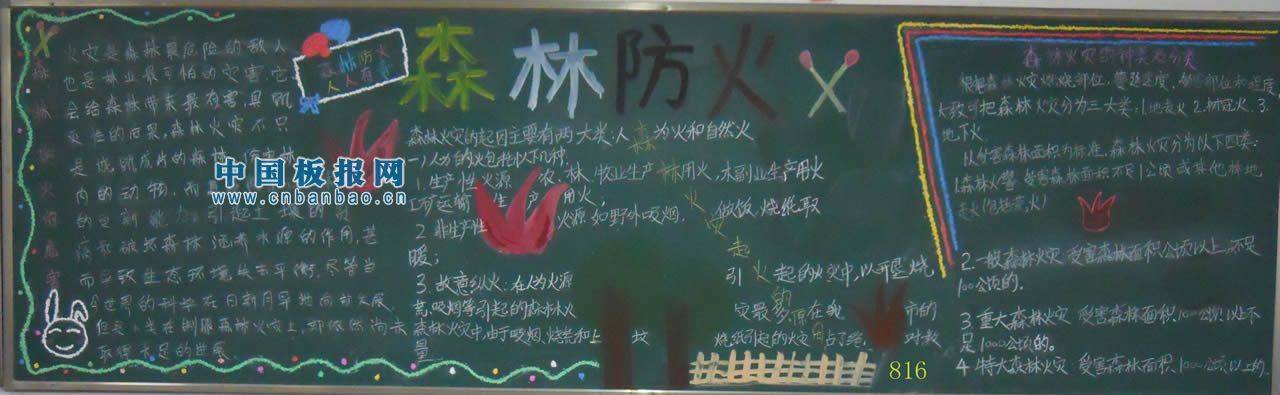 森林防火
火灾是森林最危险的敌人
也是林业最可怕的灾害，它
会给森林带来最有害，具毁
灭性的后果，森林火灾不只
是
内的动物，而
引起土壤的
病和破坏森林涵养水源的作用，甚
而导致生态环境失去平衡，尽管当
今世界的科学在日新月异地向前发展
但是，人类在制服森林火灾上，却依然尚未
取得长足的进展。
林防火
人人有责
森林火灾的起因主要有两大类：人为火和自然火
一）人为的火包括以下几种
1.生产性火源 农、林、牧业生产用火，林副业生产用火
工矿运输 生产用火；
2.非生产性 火源：如野外吸烟， 做饭，烧纸，取
暖；
3.故意纵火：在人为火源 引起的火灾中，以开垦烧
荒、吸烟等引起的森林火 灾最多 在我 市的
森林火灾中，由于吸烟、烧荒和上 坟 烧纸引起的火灾占了绝 对数
量
森林火灾的种类及分类
根据森林火灾燃烧部位，蔓延速度，
大致可把森林火灾分为三大类：1.地表火 2.树冠火 3.
地下火
以受害森林面积为标准，森林火灾分为以下四类：
1.森林火警 受害森林面积不足1公顷或其他林地
起火（包括荒火）
2.一般森林火灾 受害森林面积1公顷以上，不足
100公顷的。
3.重大森林火灾 受害森林面积100公顷以上不
足1000公顷的。
4.特大森林火灾：受害森林面积1000公顷以上的。
中国板报网
www.cnbanbao.cn
816